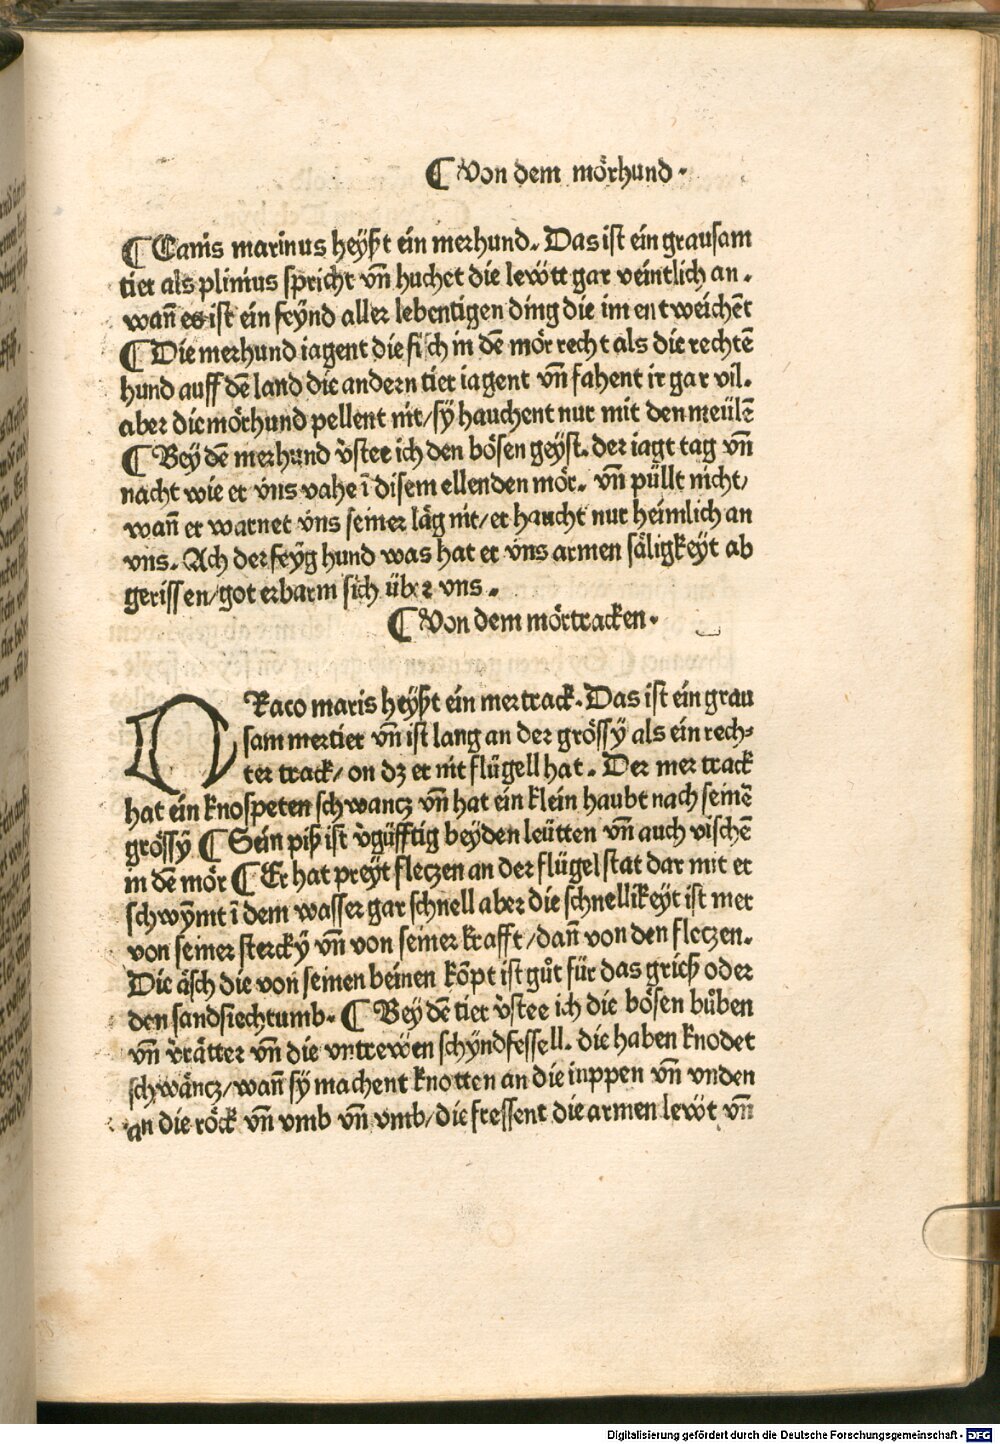 ¶ Von dem mörhund.
¶ Canis marinus heyßt ein merhund. Das ist ein grausam
tier als plinius spricht vñ huchet die lewtt gar veintlich an.
wañ es ist ein feynd aller lebentigen ding die im entweichẽt
¶ Die merhund iagent die fisch in dẽ mör recht als die rechtẽ
hund auff dẽ land die andern tier iagent vñ fahent ir gar vil.
aber die mörhund pellent nit/ sy hauchent nur mit den meülẽ
¶ Bey dẽ merhund v̀stee ich den bösen geyst. der iagt tag vñ
nacht wie er vns vahe ĩ disem ellenden mör. vñ püllt nicht/
wañ er warnet vns seiner läg nit/ er haucht nur heimlich an
vns. Ach der feyg hund was hat er vns armen säligkeyt ab
gerissen/ got erbarm sich über vns.
¶ Von dem mörtracken.
DRaco maris heyßt ein mertrack. Das ist ein grau
sam mertier vñ ist lang an der grössy als ein rech⸗
ter track/ on dz er nit flügell hat. Der mer track
hat ein knospeten schwancz vñ hat ein klein haubt nach seinẽ
grössy ¶ Sein piß ist v̀güfftig beyden leütten vñ auch vischẽ
in dẽ mör ¶ Er hat preyt fleczen an der flügel stat dar mit er
schwymt ĩ dem wasser gar schnell aber die schnellikeyt ist mer
von seiner stercky vñ von seiner krafft/ dañ von den fleczen.
Die äsch die von seinen beinen kõpt ist gůt für das grieß oder
den sandsiechtumb. ¶ Bey dẽ tier v̀stee ich die bösen bůben
vñ v̀rätter vñ die vntrewen schyndfessell. die haben knodet
schwäncz/ wañ sy machent knotten an die iuppen vñ vnden
an die röck vñ vmb vñ vmb/ die fressent die armen lewt vñ
Digitalisierung gefördert durch die Deutsche Forschungsgemeinschaft - DFG